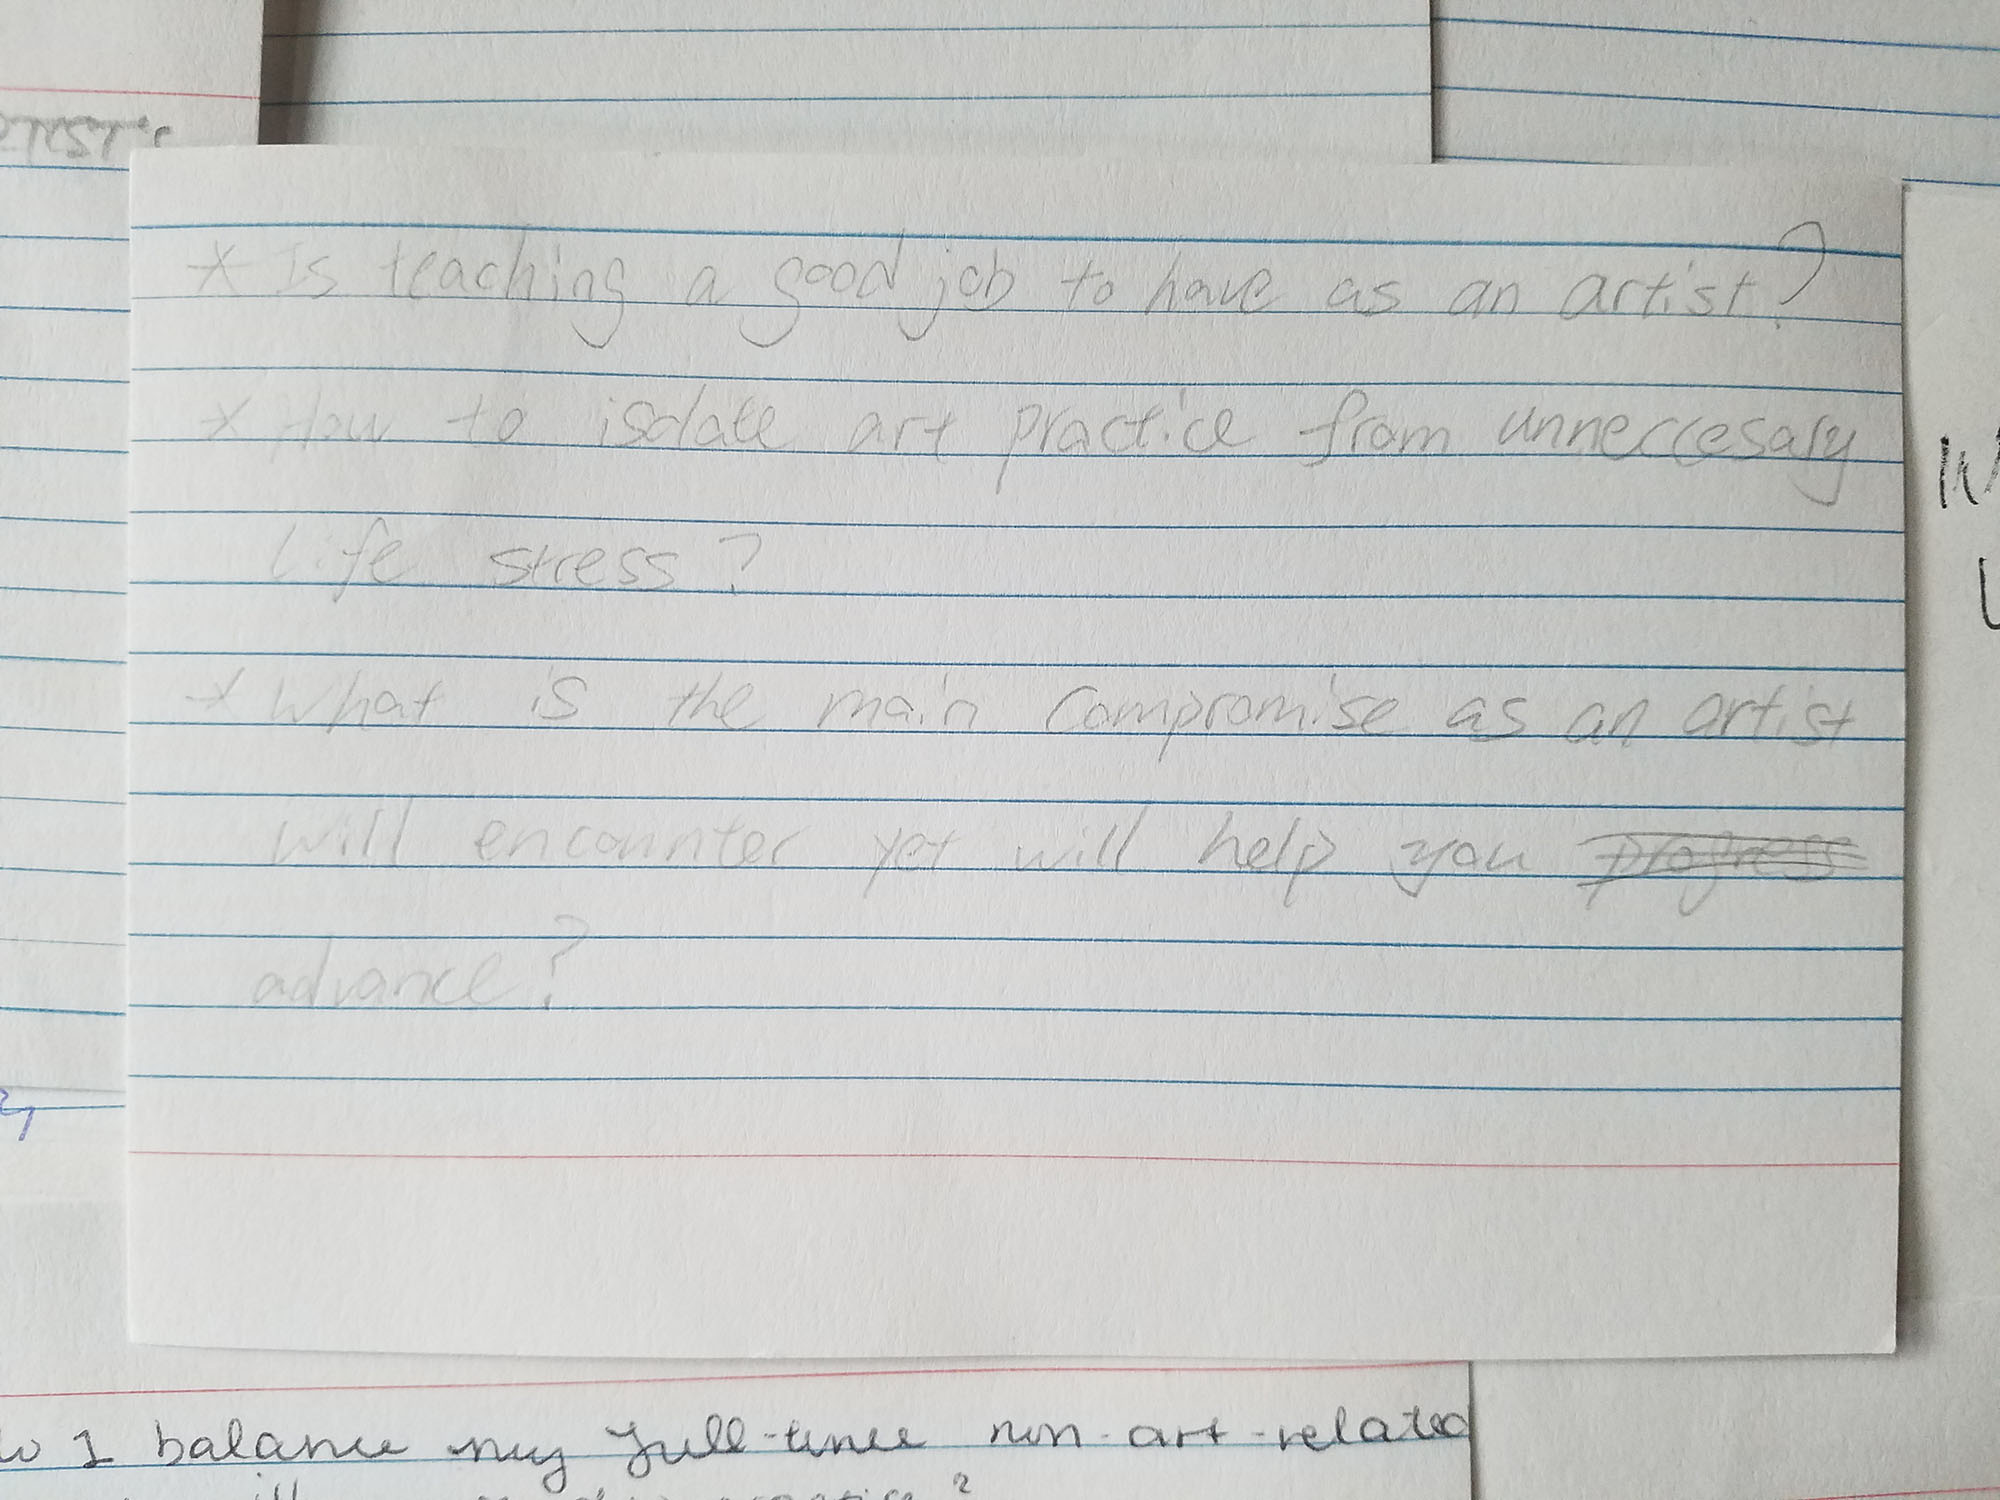 * Is teaching a good job to have as an artist?
* How to isolate art practice from unneccesary
life stress?
* What is the main compromise as an artist
will encounter yet will help you progress
advance?
I balance my full-time non-art-related